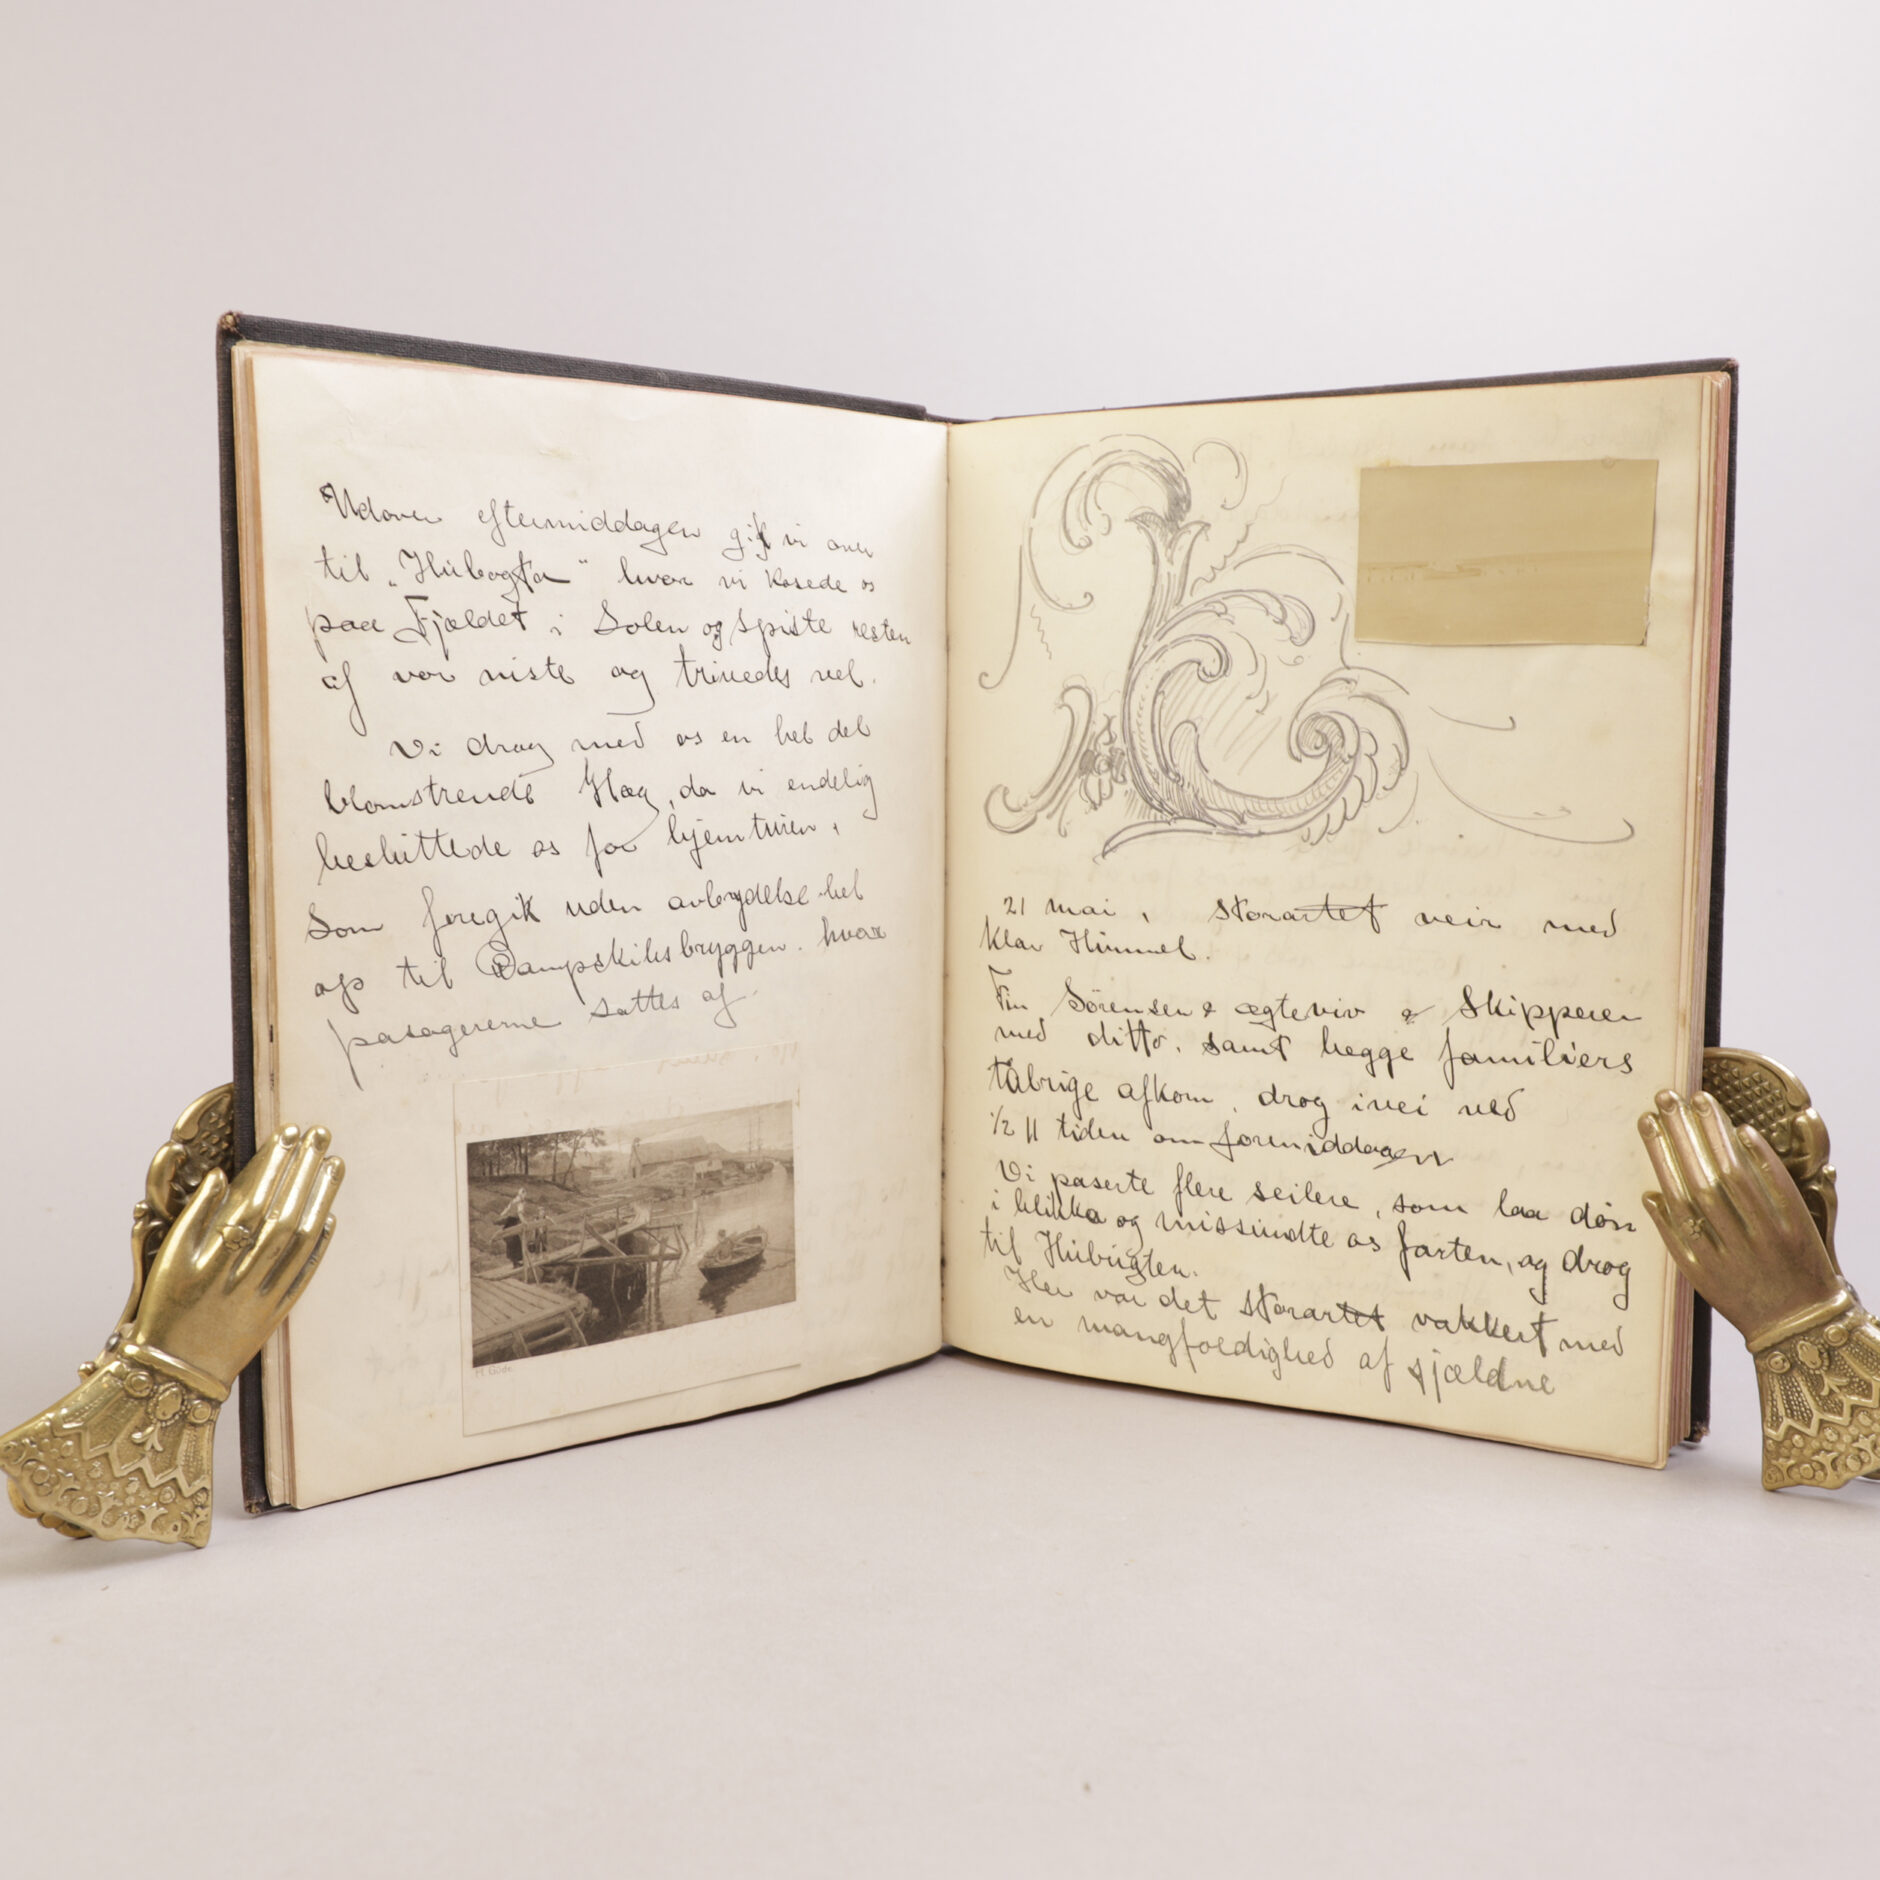 Udover eftermiddagen gik vi over
til „Hübogta" hvor vi kosede os
paa Fjældet i Solen og spiste resten
af vor niste og trivedes vel.
Vi drog med os en hel del
blomstrende Hæg, da vi endelig
besluttede os for hjemturen,
Som foregik uden avbrydelse hel
op til Dampskibsbryggen. hvor
pasagererne sattes af.
H. Göde.
21 mai, storartet veir med
klar Himmel.
Fin Sörensen & ægteviv & Skipperen
med ditto, samt begge familiers
talrige afkom, drog ivei ved
1/2 11 tiden om formiddagen
Vi paserte flere seilere, som laa
i blikka og missundte os farten, og drog
til Hübügten.
Her var det storartet vakkert med
en mangfoldighed af sjældne